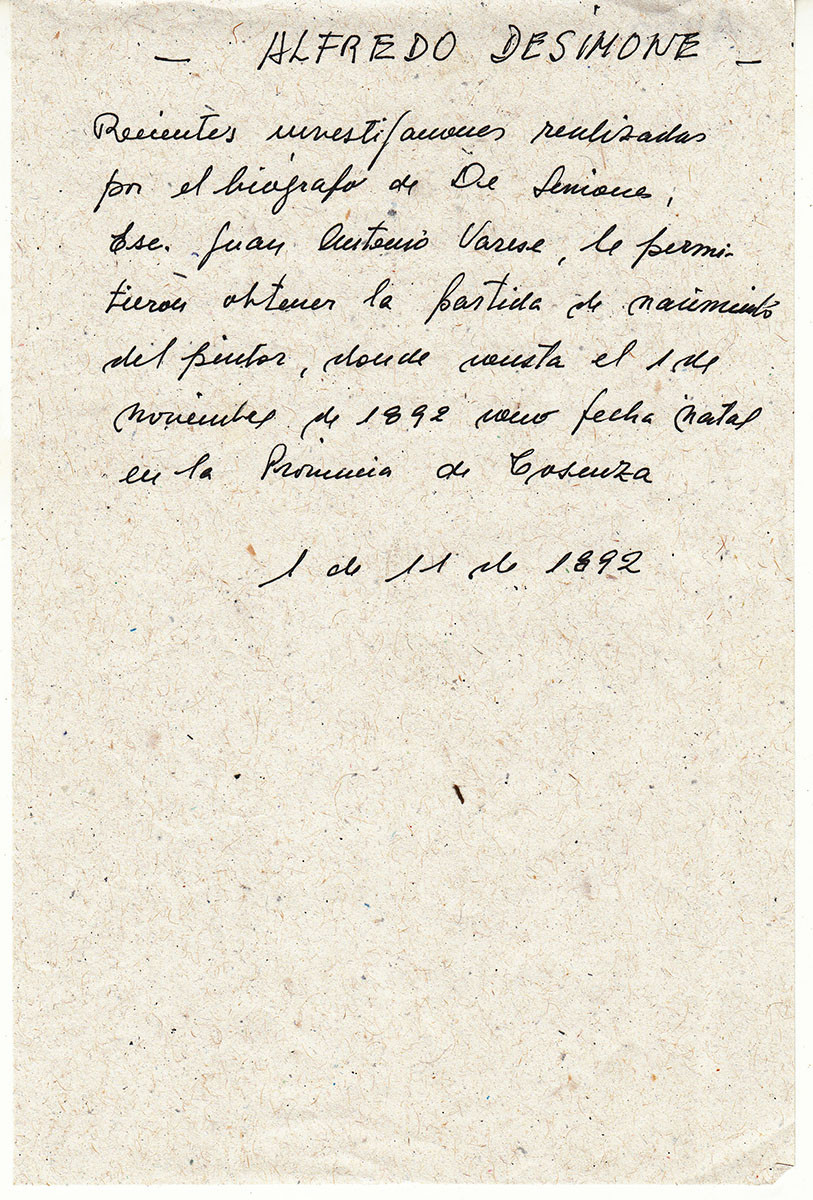 — ALFREDO DESIMONE —
Recientes investigaciones realizadas
por el biógrafo de De Simone,
Esc. Juan Antonio Varese, le permi-
tieron obtener la partida de nacimiento
del pintor, donde consta el 1 de
noviembre de 1892 como fecha natal
en la Provincia de Cosenza
1 de 11 de 1892